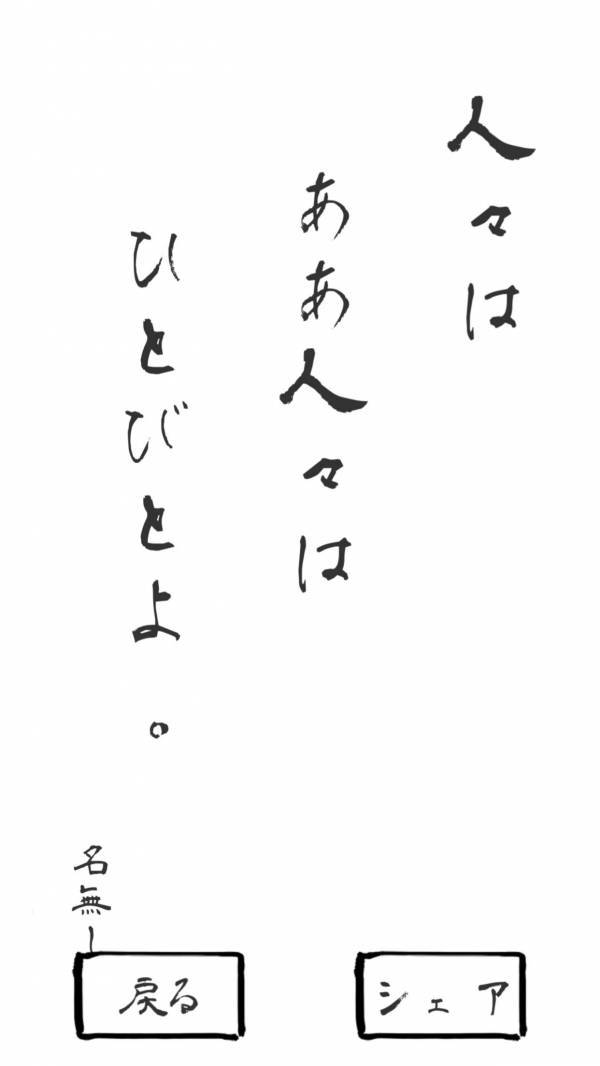 人々は
ああ人々は
ひとびとよ。
名無し
戻る
シェア